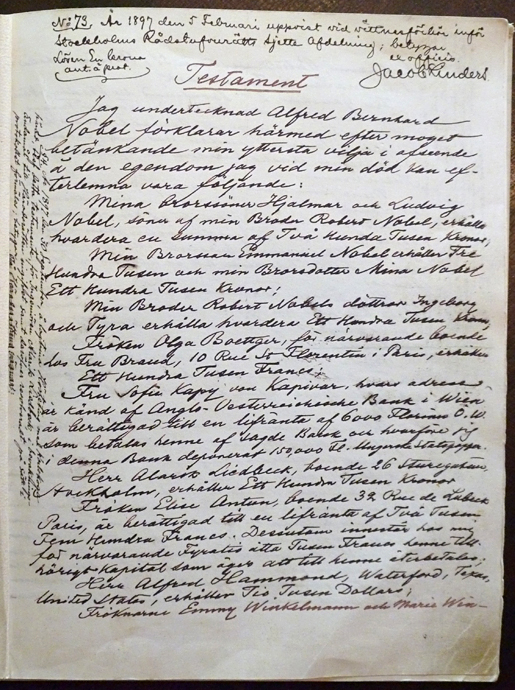 No 73. År 1897 den 5 Februari uppvist vid vittnesförhör inför
Stockholms Rådstufvurätts Sjette Afdelning; betygar
Lösen En krona
ex officio.
Testament
Jag undertecknad Alfred Bernhard
Nobel förklarar härmed efter moget
betänkande min yttersta vilja i afseende
å den egendom jag vid min död kan ef-
terlemna vara följande:
Mina Brorsöner Hjalmar och Ludvig
Nobel, söner af min Broder Robert Nobel, erhålla
hvardera en summa af Två Hundra Tusen Kronor;
Min Brorson Emmanuel Nobel erhåller Tre
Hundra Tusen och min Brorsdotter Mina Nobel
Ett Hundra Tusen Kronor;
Min Broder Robert Nobels döttrar Ingeborg
och Tyra erhålla hvardera Ett Hundra Tusen Kronor;
Fröken Olga Boettger, för närvarande boende
hos Fru Brand, 10 Rue St Florentin i Paris, erhåller
Ett Hundra Tusen Francs;
Fru Sofie Kapy von Kapivar, hvars adress
är känd af Anglo-Oesterreichische Bank i Wien
är berättigad till en lifränta af 6000 Florins Ö.W.
som betalas henne af sagde Bank och hvarför jag
i denna Bank deponerat 150,000 Fl. i Ungerska statspapper;
Herr Alarik Liedbeck, boende 26 Sturegatan,
Stockholm, erhåller Ett Hundra Tusen Kronor
Fröken Elise Antun, boende 32 Rue de Lubeck
Paris, är berättigad till en lifränta af Två Tusen
Fem Hundra Francs. Dessutom innestår hos mig
för närvarande Fyratio åtta Tusen Francs henne till-
hörigt kapital som äger att till henne återbetalas;
Herr Alfred Hammond, Waterford, Texas,
United States, erhåller Tio Tusen Dollars;
Fröknarne Emmy Winkelmann och Marie Win-